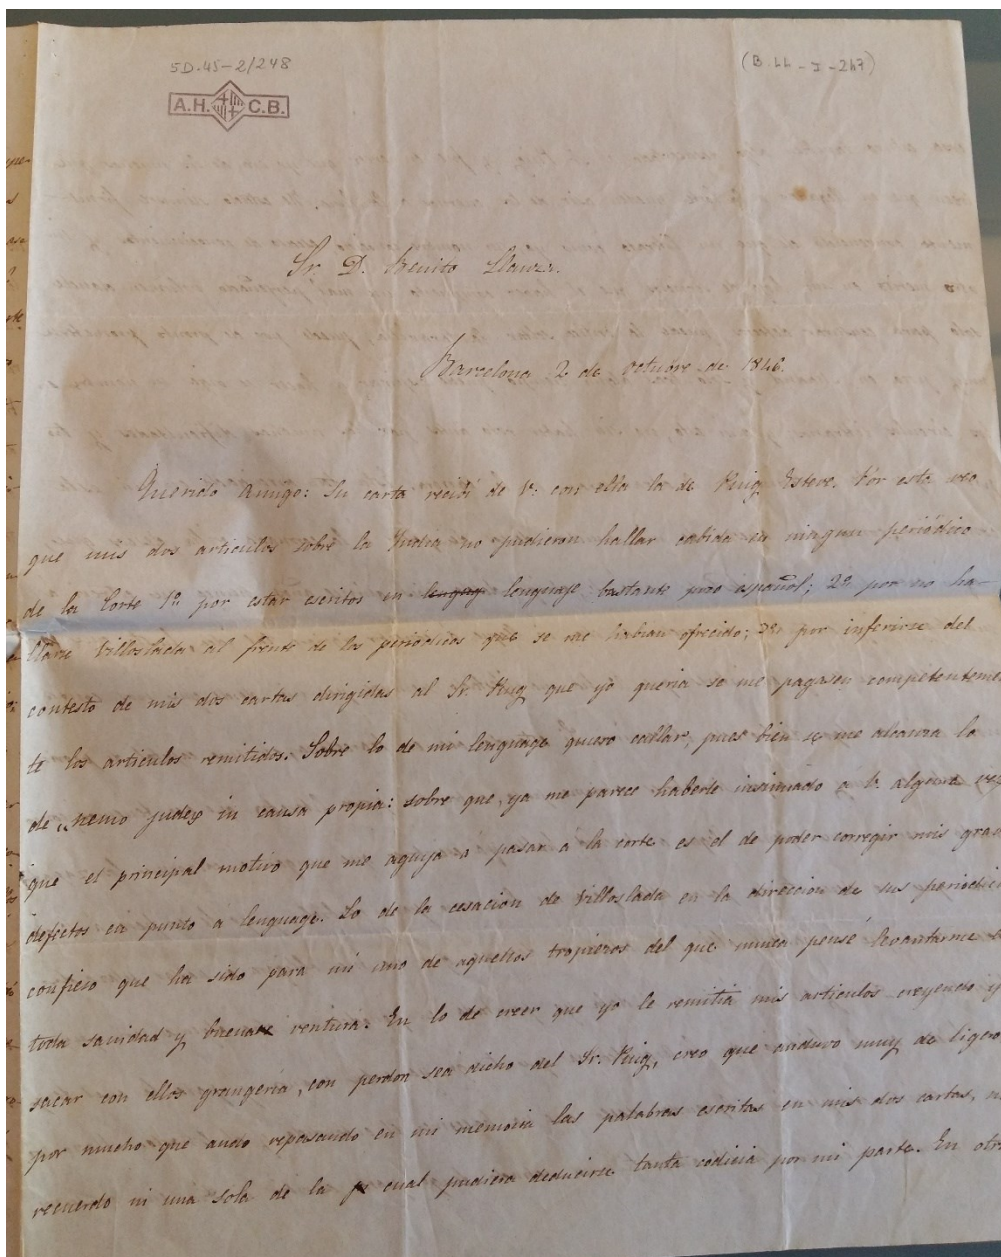 5D.45-2/248
(B.LL-I-247)
A.H. C.B.
Sr. D. Benito Llanza.
Barcelona 2 de octubre de 1846.
Querido Amigo: Su carta recibí de V. con ella la de Puig Esteve. Por esta veo
que mis dos articulos sobre la India no pudieron hallar cabida en ningun periódico
de la Corte 1º por estar escritos en lenguaje bastante poco español; 2º por no ha-
llarse Villoslada al frente de los periódicos que se me habian ofrecido; 3º por inferirse del
contesto de mis dos cartas dirigidas al Sr Puig que yo queria se me pagasen competentemen
te los articulos remitidos. Sobre lo de mi lenguage quiero callar, pues bien se me alcanza lo
de "nemo judex in causa propia: sobre que, ya me parece haberle insinuado a V. alguna vez
que el principal motivo que me aguija a pasar á la corte es el de poder corregir mis graves
defectos en punto a lenguage. Lo de la cesacion de Villoslada en la direccion de sus periodicos
confieso que ha sido para mi uno de aquellos tropiezos del que nunca pensé levantarme
toda sanidad y buena ventura. En lo de creer que yo le remitia mis articulos creyendo
sacar con ellos grangeria, con perdon sea dicho del Sr. Puig, creo que anduvo muy de ligero,
por mucho que ando repasando en mi memoria las palabras escritas en mis dos cartas,
recuerdo ni una sola de la cual pudiera deducirse tanta codicia por mi parte. En